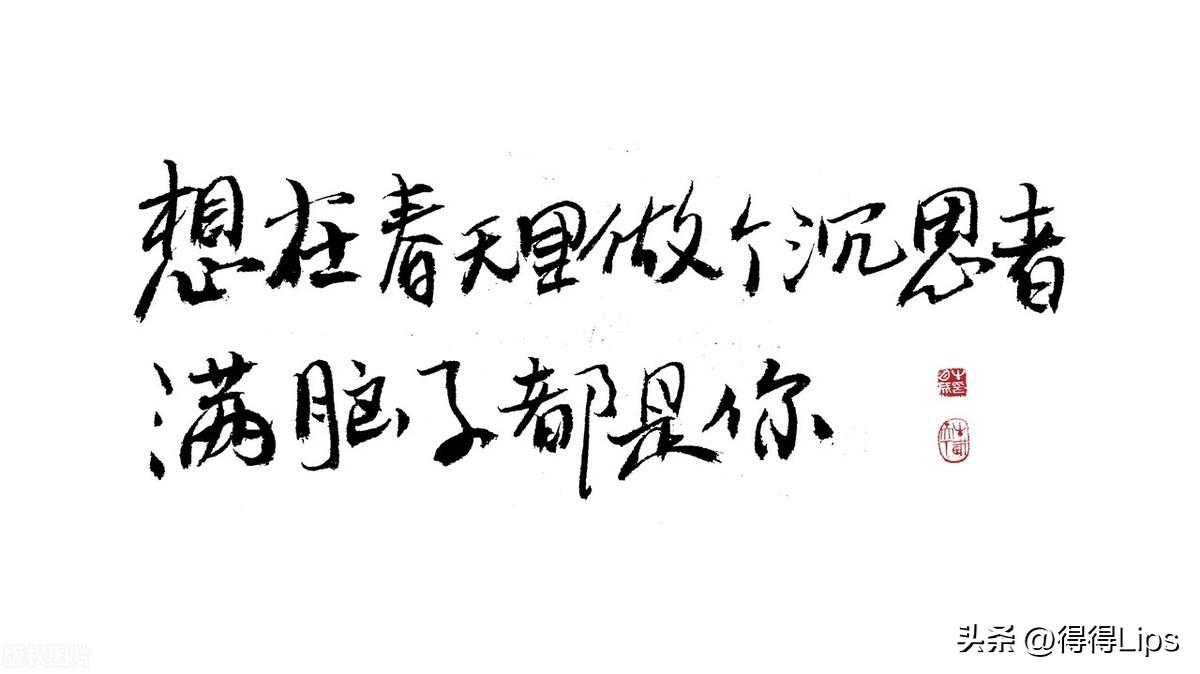 想在春天里做个沉思者
满脑子都是你
头条 @得得Lips
版权图片